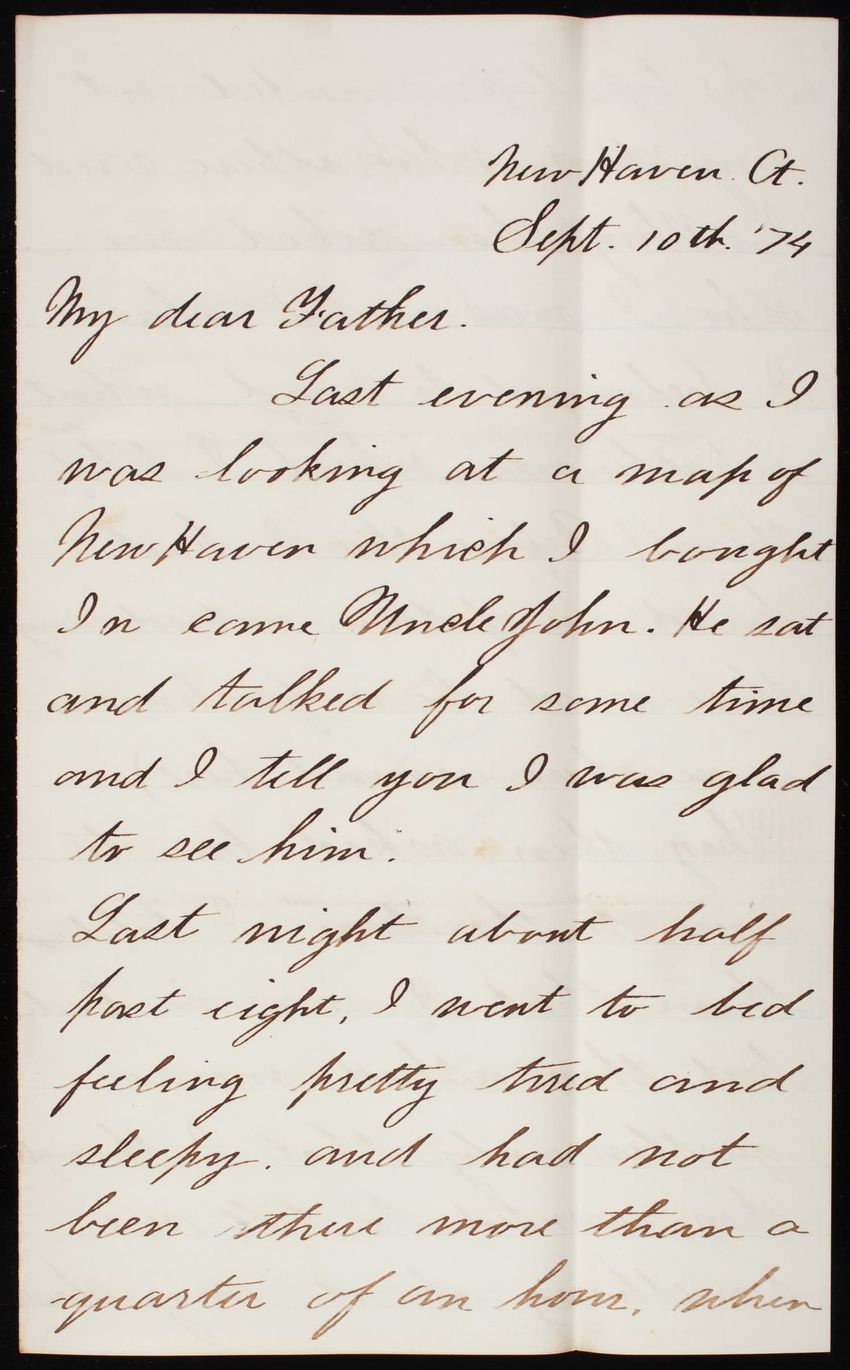 New Haven Ct.
Sept. 10th. '74
My dear Father.
Last evening as I
was looking at a map of
New Haven which I bought
In came Uncle John. He sat
and talked for some time
and I tell you I was glad
to see him.
Last night about half
past eight, I went to bed
feeling pretty tired and
sleepy. and had not
been there more than a
quarter of an hour, when